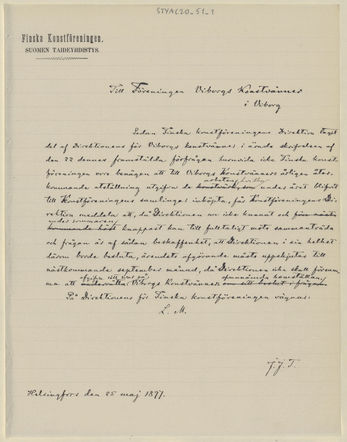 STYA120_51_1
Finska Konstföreningen.
SUOMEN TAIDEYHDISTYS.
Till Föreningen Viborgs Konstvänner
i Viborg
Sedan Finska konstföreningens Direktion tagit
del af Direktionens för Viborgs konstvänner i ärade skrifvelse af
den 22 dennes framställda förfrågan huruvida icke Finska konst-
föreningen vore benägen att till Viborgs Konstvänners årligen åter-
kommande utställning utgifva de konstverk, som under året blifvit
till Konstföreningens samlingar inköpta, får Konstföreningens Di-
rektion meddela att, då Direktionen nu icke kunnat och
under sommaren
kommande höst knappast kan till fulltaligt möte sammanträda
och frågan är af sådan beskaffenhet, att Direktionen i sin helhet
därom borde besluta, ärendets afgörande måste uppskjutas till
nästkommande september månad, då Direktionen icke skall försum-
ma att Viborgs Konstvänner
På Direktionens för Finska konstföreningen vägnar:
L. M.
J. J. T.
Helsingfors den 25 maj 1897.